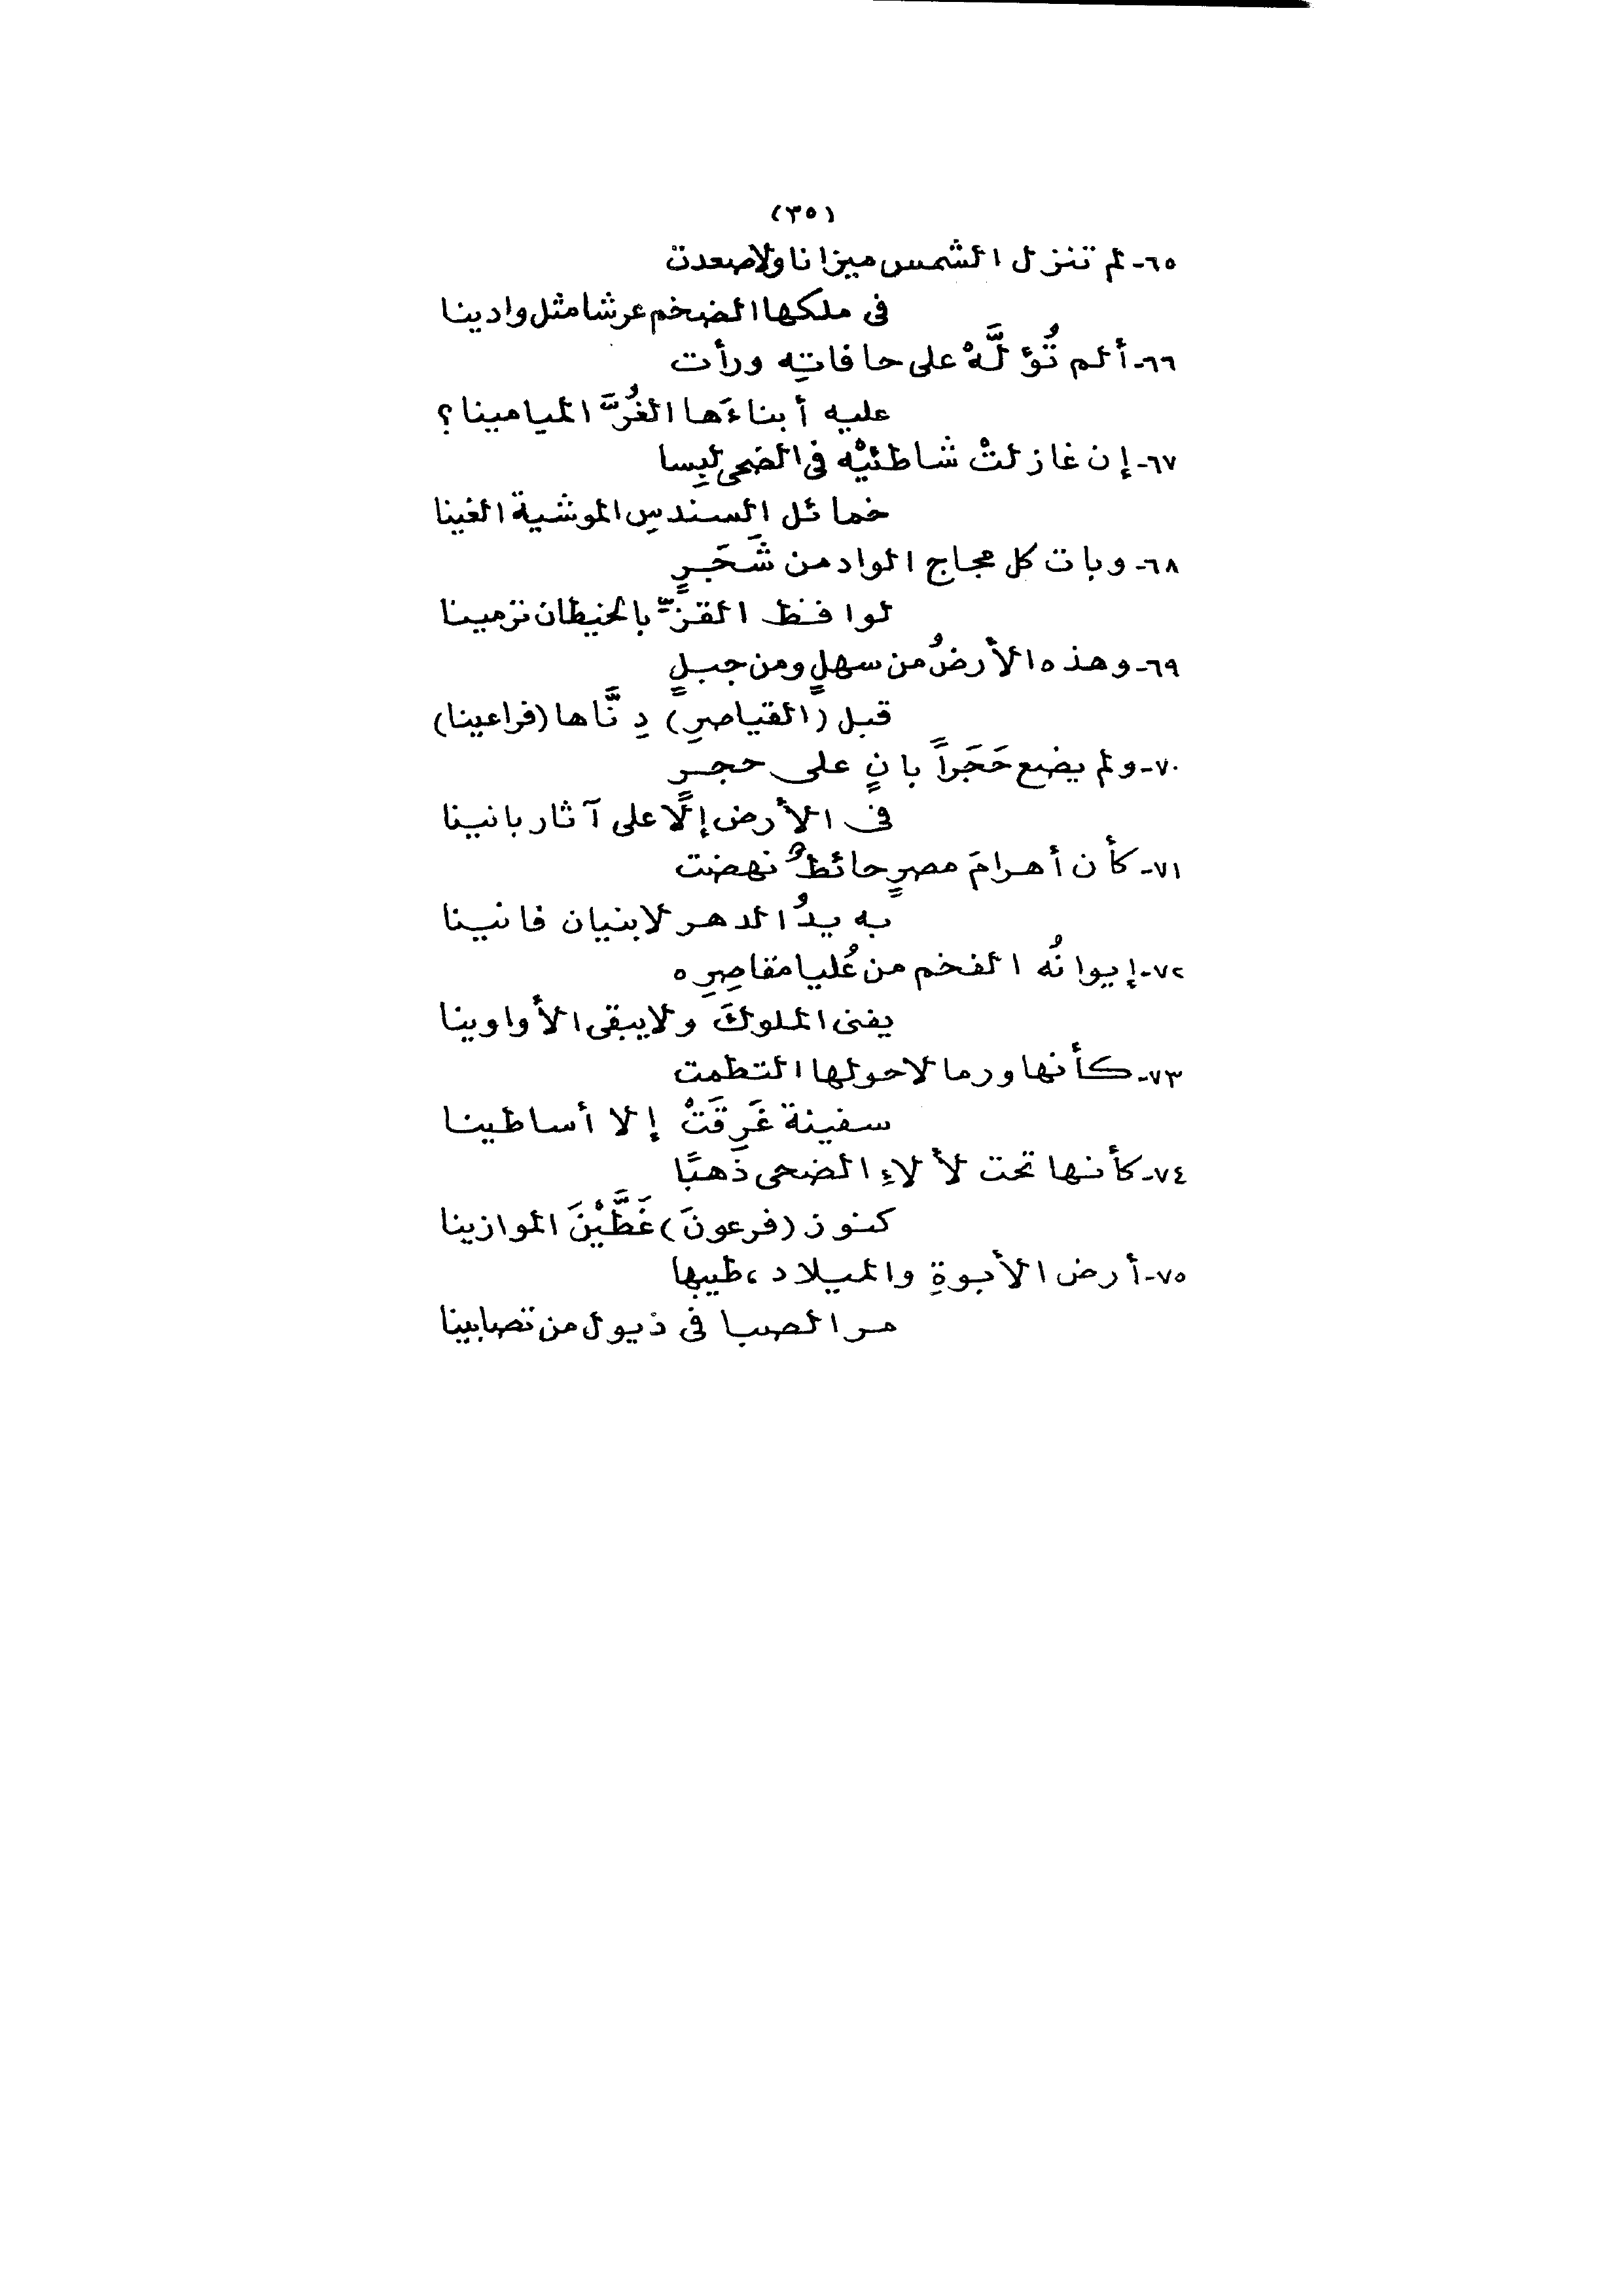 (٣٥)
٦٥- لم تنزل الشمس ميزانا ولا صعدت
فى ملكها الضخم عرشا مثل وادينا
٦٦- ألم تُؤلَّهْ على حافاتِه ورأت
عليه أبناءَها الغُرَّ الميامينا ؟
٦٧- إن غازلتْ شاطئيْه فى الضحى لبِسا
خمائل السندسِ الموشية الغينا
٦٨- وبات كل مجاج الواد من شَجَرٍ
لوافظ القزّ بالخيطان ترمينا
٦٩- وهذه الأرضُ من سهلٍ ومن جبلٍ
قبل (القياصرِ) دِنَّاها (فراعينا)
٧٠- ولم يضع حَجَراً بانٍ على حجرٍ
فى الأرض إلَّا على آثار بانينا
٧١- كأن أهرامَ مصرٍ حائطٌ نهضت
به يدُ الدهر لا بنيان فانينا
٧٢- إيوانُه الفخم من عُليا مقاصِرِه
يفنى الملوكَ ولا يبقى الأواوينا
٧٣- كأنها ورمالا حولها التطمت
سفينة غَرِقَتْ إلا أساطينا
٧٤- كأنها تحت لألاءِ الضحى ذَهبًا
كنوز (فرعونَ) غَطَّيْنَ الموازينا
٧٥- أرض الأبوةِ والميلاد، طيبها
مر الصبا فى ذيول من تصابينا